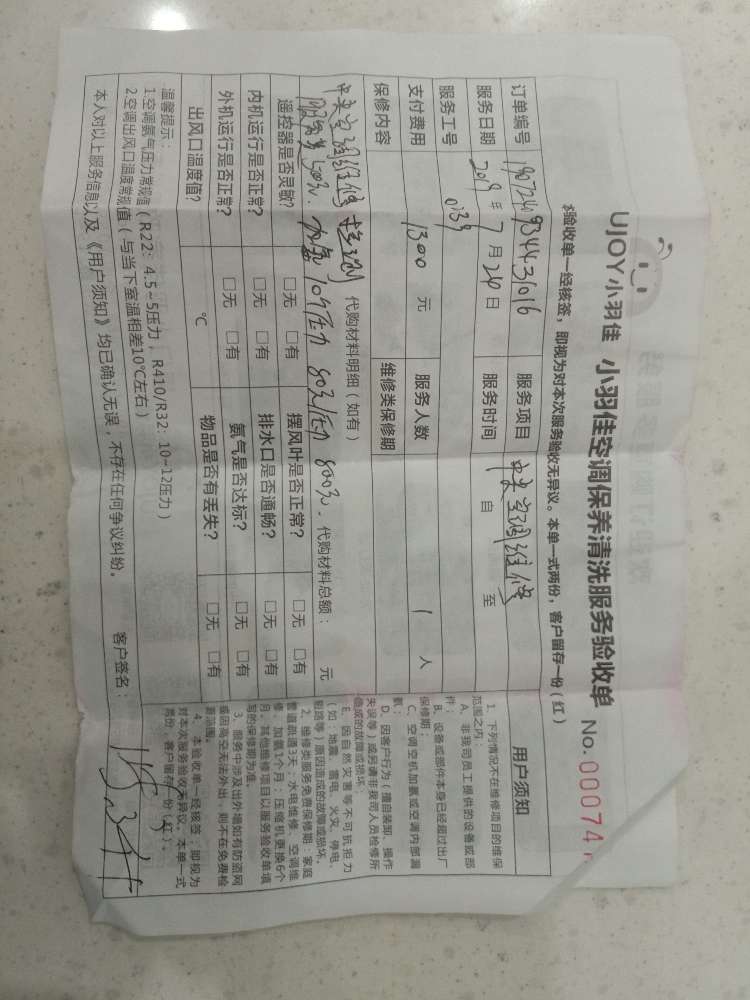 UJOY小羽佳 小羽佳空调保养清洗服务验收单 No. 00074
*验收单一经核签，即视为对本次服务验收无异议。本单一式两份，客户留存一份（红）
订单编号 服务项目 中央空调维修
服务日期 2019年7月24日 服务时间 自 至
服务工号 0139
支付费用 1300 元 服务人数 1 人
保修内容 维修类保修期
中央空调维修 代购材料明细（如有）
服务费500元. 加氟10个压力 80元/压力 800元. 代购材料总额： 元
遥控器是否灵敏？ □无 □有 摆风叶是否正常？ □无 □有
内机运行是否正常？ □无 □有 排水口是否通畅？ □无 □有
外机运行是否正常？ □无 □有 氨气是否达标？ □无 □有
出风口温度值？ ℃ 物品是否有丢失？ □无 □有
温馨提示：
1.空调氨气压力常规值（R22：4.5~5压力，R410/R32：10~12压力）
2.空调出风口温度常规值（与当下室温相差10℃左右）
本人对以上服务信息以及《用户须知》均已确认无误，不存在任何争议纠纷。 客户签名：
用户须知
1、下列情况不在维修项目的维保
范围之内：
A、非我司员工提供的设备或部
件；
B、设备或部件本身已经超过出厂
保修期；
C、空调空机加氨或空调内部漏
氨；
D、因客户行为（擅自装卸、操作
失误等）或另请非我司人员检修所
造成的故障或损坏；
E、因自然灾害等不可抗拒力
（如：地震、雷电、火灾、停电、
鼠咬等）原因造成的故障或损坏。
2、维修类服务免费保修期：家庭
管道疏通3天，水电维修、空调维
修、加氨1个月；压缩机更换6个
月，其他维修项目以服务验收单填
写的保修期为准。
3、服务中涉及出外墙如有防盗网
或因高空无法外出，则不在免费检
测范围。
4、本验收单一经核签，即视为
对本次服务验收无异议。本单一式
两份，客户留存一份（红）。